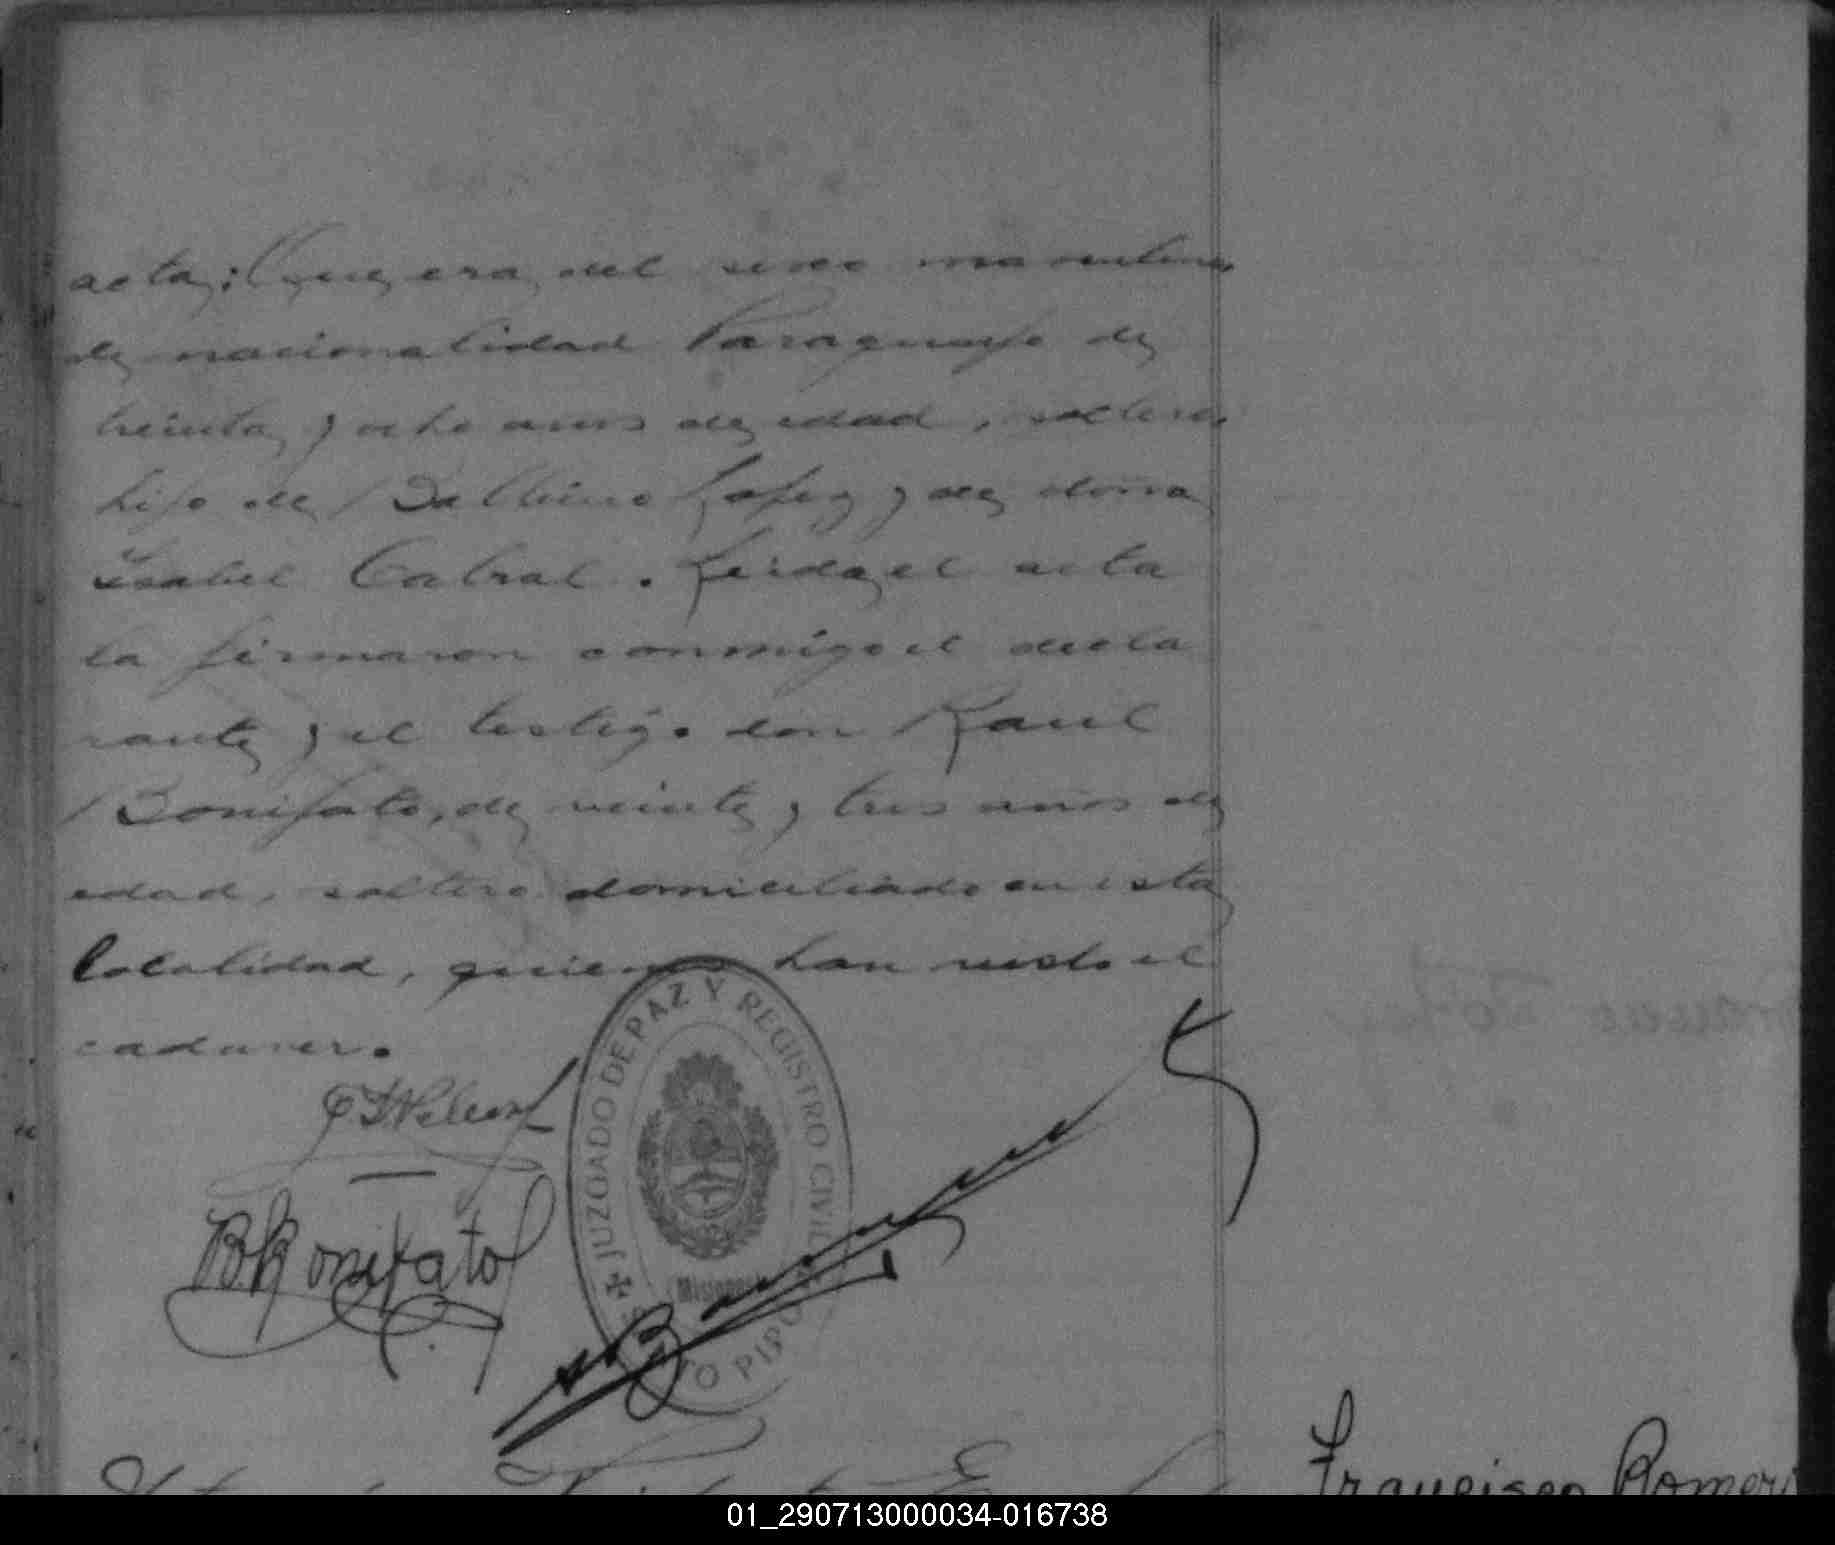 acta: Que era del sexo masculino
de nacionalidad Paraguayo de
treinta y ocho años de edad, soltero,
hijo de Balbino Lopez y de dona
Isabel Cabral. Leida el acta
la firmaron conmigo el decla
rante y el testigo don Raul
Bonifato, de veinte y tres años de
edad, soltero domiciliado en esta
localidad, quienes han visto el
cadaver.
B. R. Bonifato
JUZGADO DE PAZ Y REGISTRO CIVIL
Misiones
Francisco Romer
01_290713000034-016738